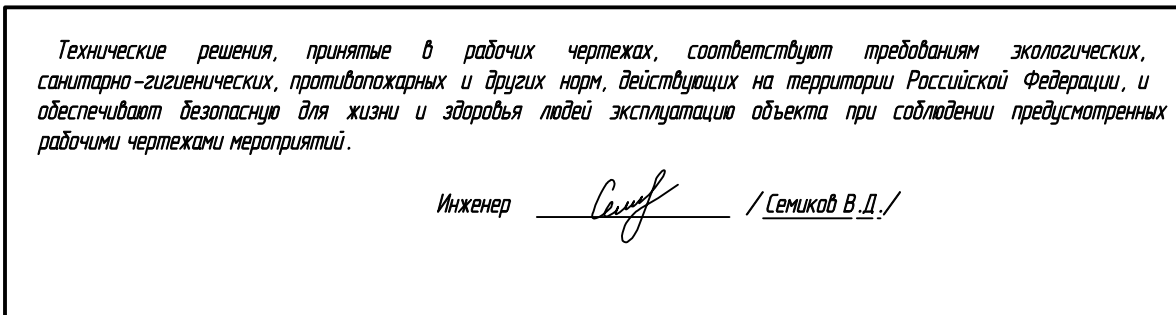 Технические решения, принятые в рабочих чертежах, соответствуют требованиям экологических,
санитарно-гигиенических, противопожарных и других норм, действующих на территории Российской Федерации, и
обеспечивают безопасную для жизни и здоровья людей эксплуатацию объекта при соблюдении предусмотренных
рабочими чертежами мероприятий.
Инженер /Семиков В.Д./